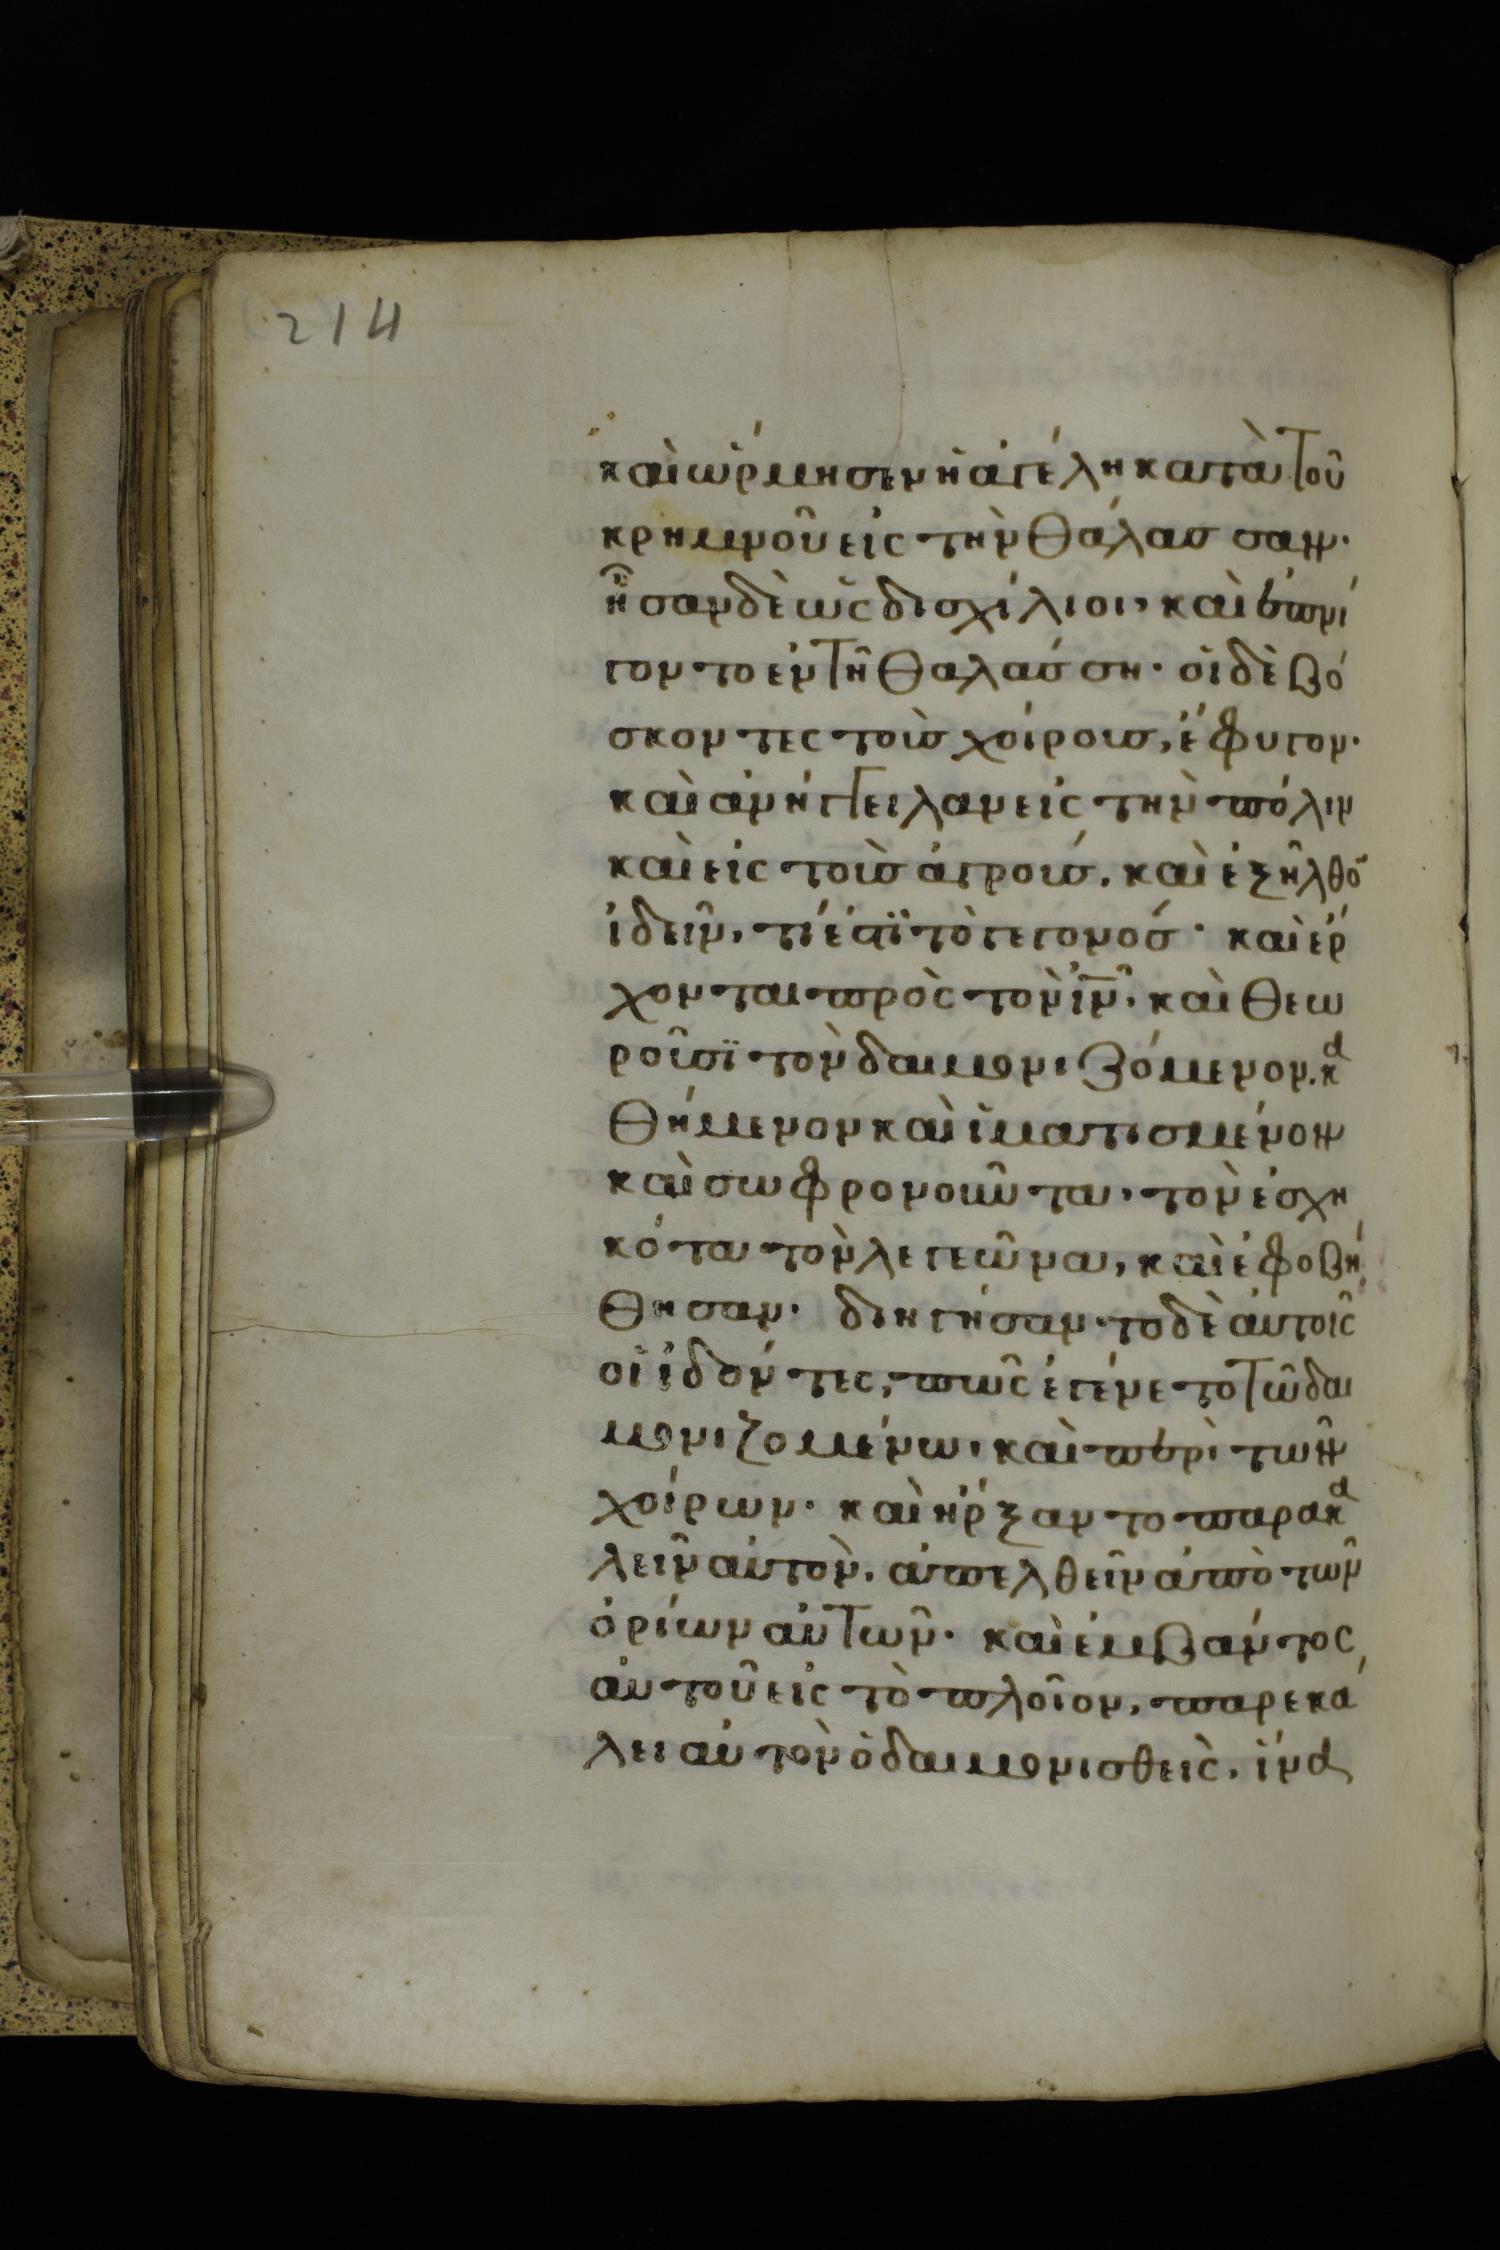 214
καὶ ὥρμησεν ἡ ἀγέλη κατὰ τοῦ
κρημνοῦ εἰς τὴν θάλασσαν·
ἦσαν δὲ ὡς δισχίλιοι, καὶ ἐπνί
γοντο ἐν τῆ θαλάσση· οἱ δὲ βό
σκοντες τοὺς χοίρους, ἔφυγον·
καὶ ἀνήγγειλαν εἰς τὴν πόλιν
καὶ εἰς τοὺς ἀγρούς. καὶ ἐξῆλθο̄
ἰδεῖν, τί ἐστϊ τὸ γεγονός· καὶ ἔρ
χονται πρὸς τὸν ἰ̅ν̅. καὶ θεω
ροῦσϊ τὸν δαιμονιζόμενον. κα
θήμενον καὶ ἱματισμένον
καὶ σωφρονοῦντα, τὸν ἐσχη
κότα τὸν λεγεῶνα, καὶ ἐφοβή
θησαν· διηγήσαντο δὲ αὐτοῖς
οἱ ἰδόντες, πῶς ἐγένετο τῶ δαι
μονιζομένω, καὶ περὶ τῶν
χοίρων· καὶ ἤρξαντο παρακα
λεῖν αὐτὸν, ἀπελθεῖν ἀπὸ τῶν
ὁρίων αὐτῶν· καὶ ἐμβάντος
αὐτοῦ εἰς τὸ πλοῖον, παρεκά
λει αὐτὸν ὁ δαιμονισθεὶς, ἵνα